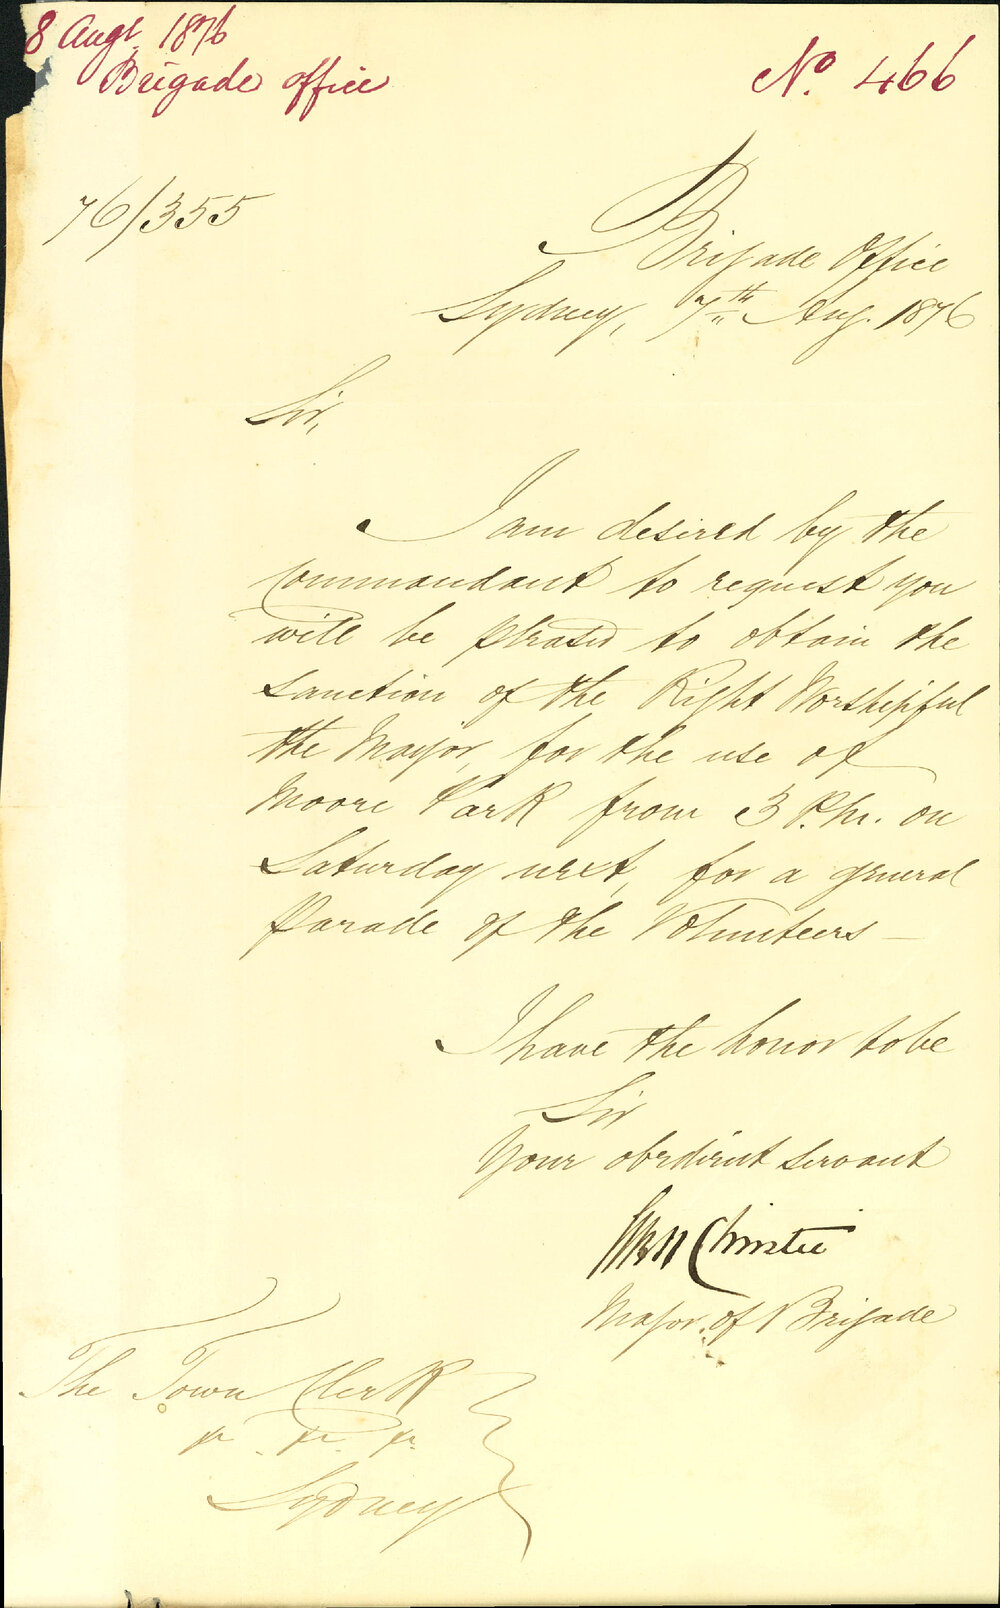 8 Augt. 1876
Brigade Office
No. 466
76/355
Brigade Office
Sydney, 7th Aug. 1876
Sir,
I am desired by the
Commandant to request you
will be pleased to obtain the
sanction of the Right Worshipful
the Mayor, for the use of
Moore Park from 3 P.M. on
Saturday next, for a general
Parade of the Volunteers –
I have the honor to be
Sir
Your obedient servant
Christie
Major of Brigade
The Town Clerk
Sydney